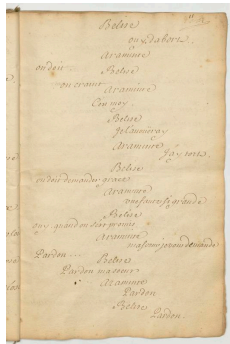 Belise
ouy, d'abord.
Araminte
on doit
Belise
on craint
Araminte
C'est moy.
Belise
Je l'avoüeray
Araminte
J'ay tort.
Belise
on doit demander grace
Araminte
une faute si grande
Belise
ouy, quand on s'est promis
Araminte
ma soeur je vous demande
Pardon...
Belise
Pardon ma soeur
Araminte
Pardon
Belise
Pardon.